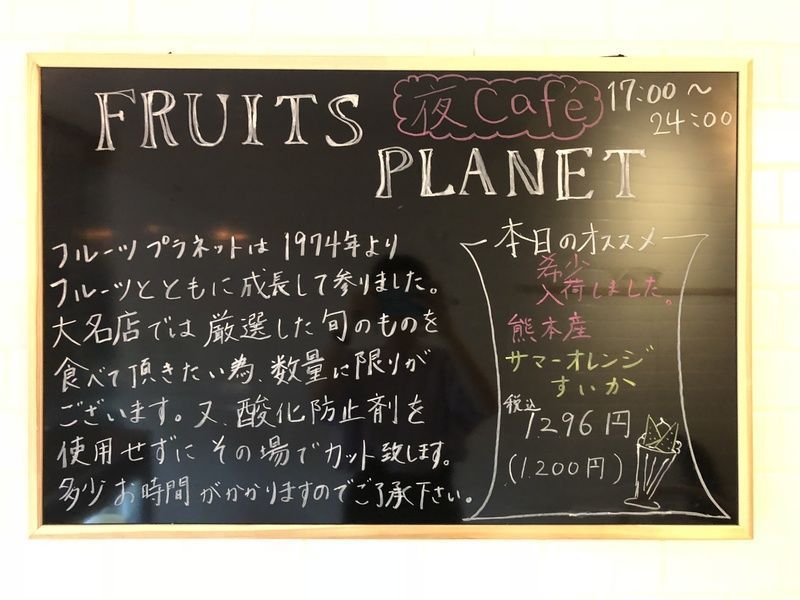 FRUITS
夜Café
17:00〜
24:00
PLANET
フルーツプラネットは1974年より
フルーツとともに成長して参りました。
大名店では厳選した旬のものを
食べて頂きたい為、数量に限りが
ございます。又、酸化防止剤を
使用せずにその場でカット致します。
多少お時間がかかりますのでご了承下さい。
本日のオススメ
希少
入荷しました。
熊本産
サマーオレンジ
すいか
税込
1296円
(1200円)